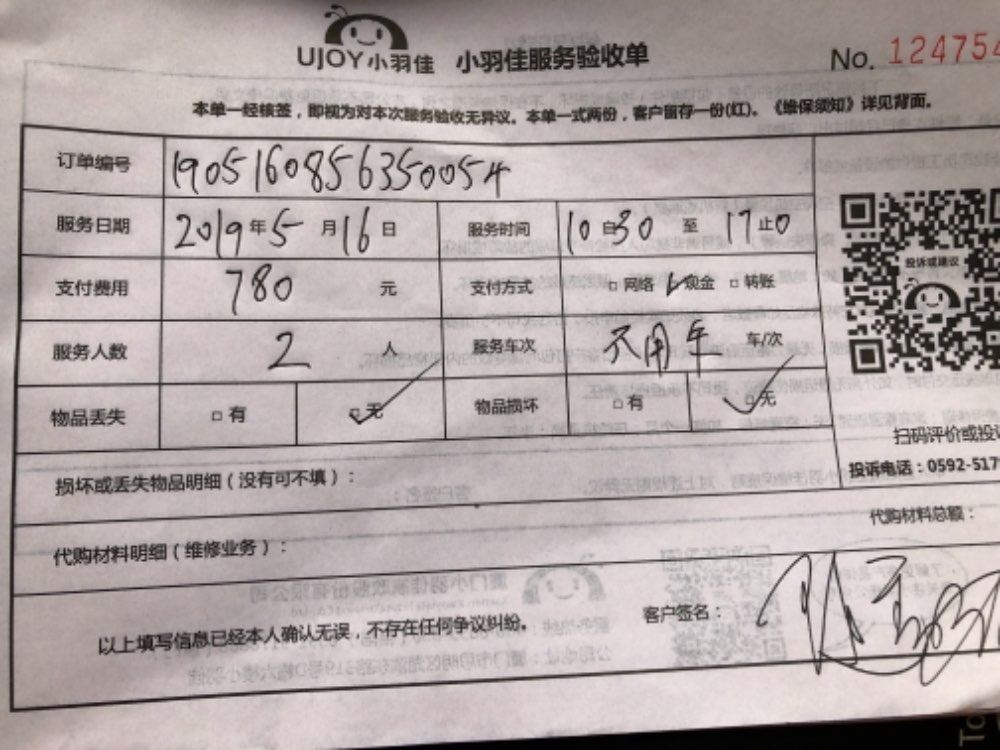 UJOY小羽佳 小羽佳服务验收单 No. 124754
本单一经核签，即视为对本次服务验收无异议。本单一式两份，客户留存一份(红)。《维保须知》详见背面。
订单编号 1905160856350054
服务日期 2019年5月16日 服务时间 10自30至17止0
支付费用 780 元 支付方式 □网络 ✓现金 □转账
服务人数 2 人 服务车次 不用车 车/次
物品丢失 □有 ☑无 物品损坏 □有 ☑无
投诉或建议
扫码评价或投诉
投诉电话：0592-517
损坏或丢失物品明细（没有可不填）：
代购材料明细（维修业务）： 代购材料总额：
以上填写信息已经本人确认无误，不存在任何争议纠纷。 客户签名：